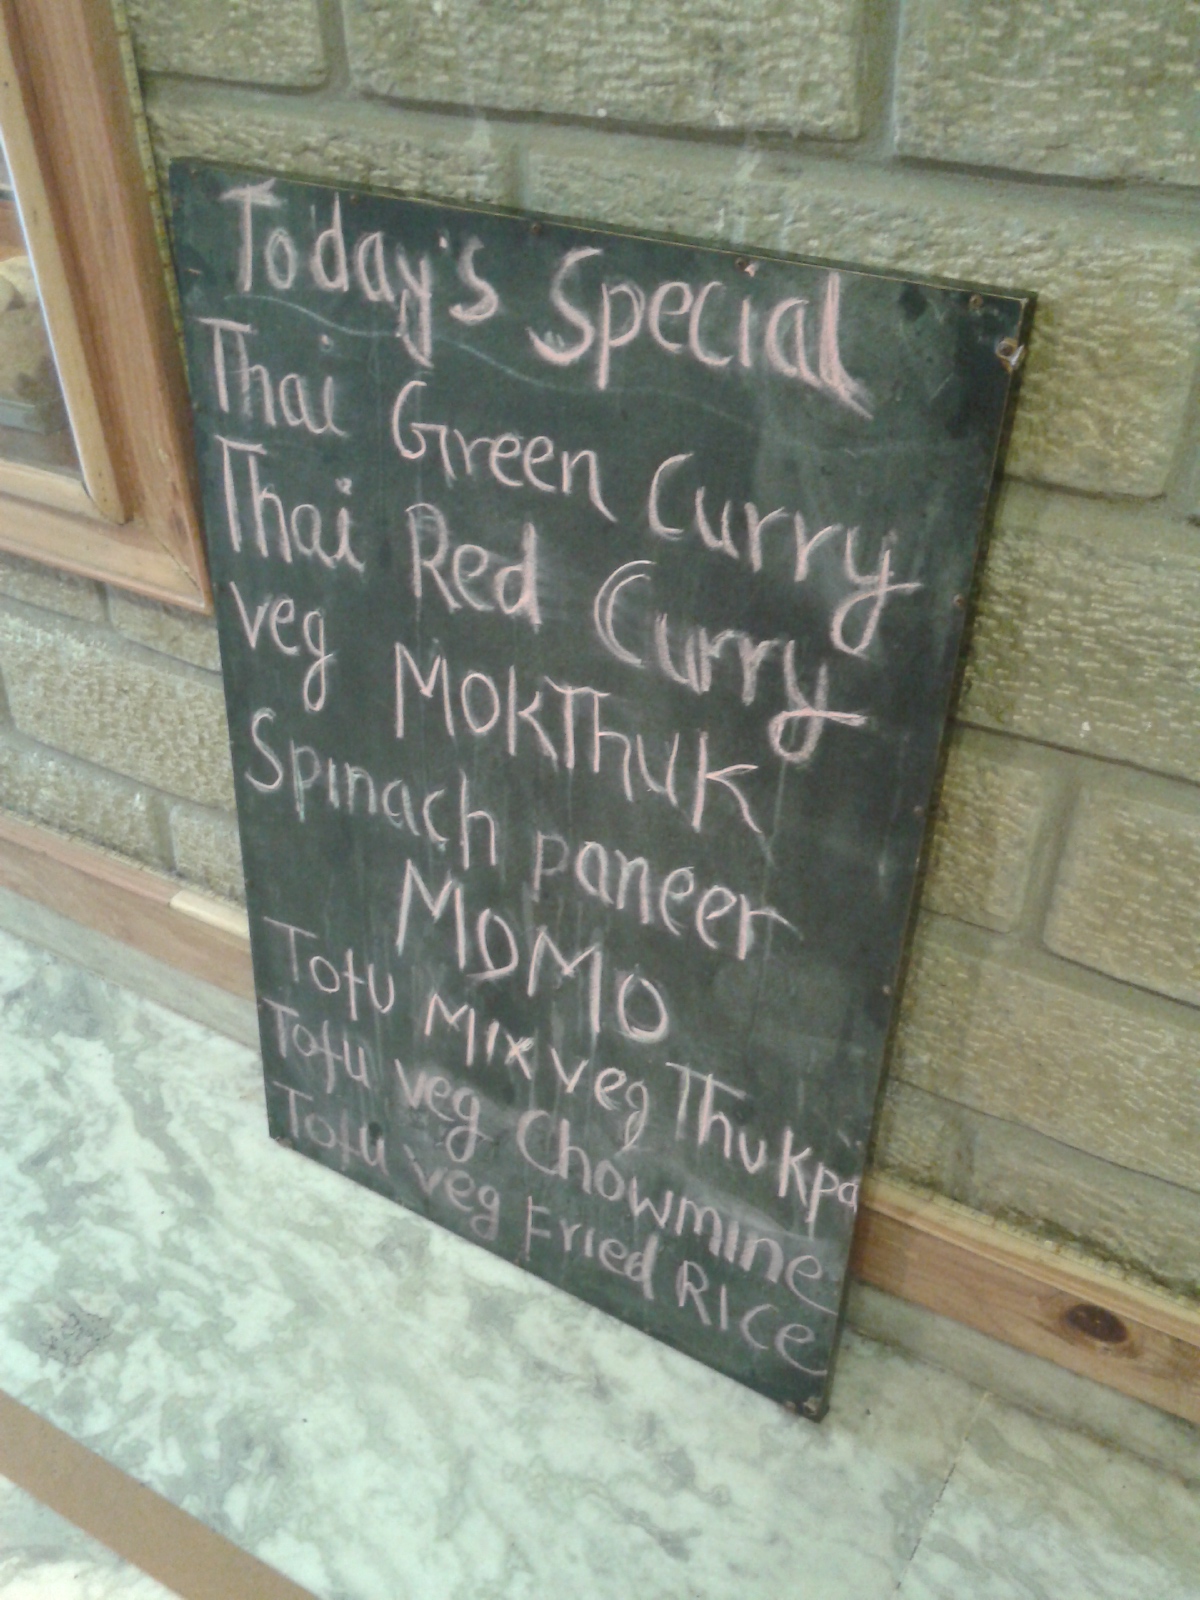 Today's Special
Thai Green Curry
Thai Red Curry
veg MOKThuK
Spinach paneer
MOMO
Tofu Mix veg ThuKpa
Tofu veg Chowmine
Tofu veg Fried RICe